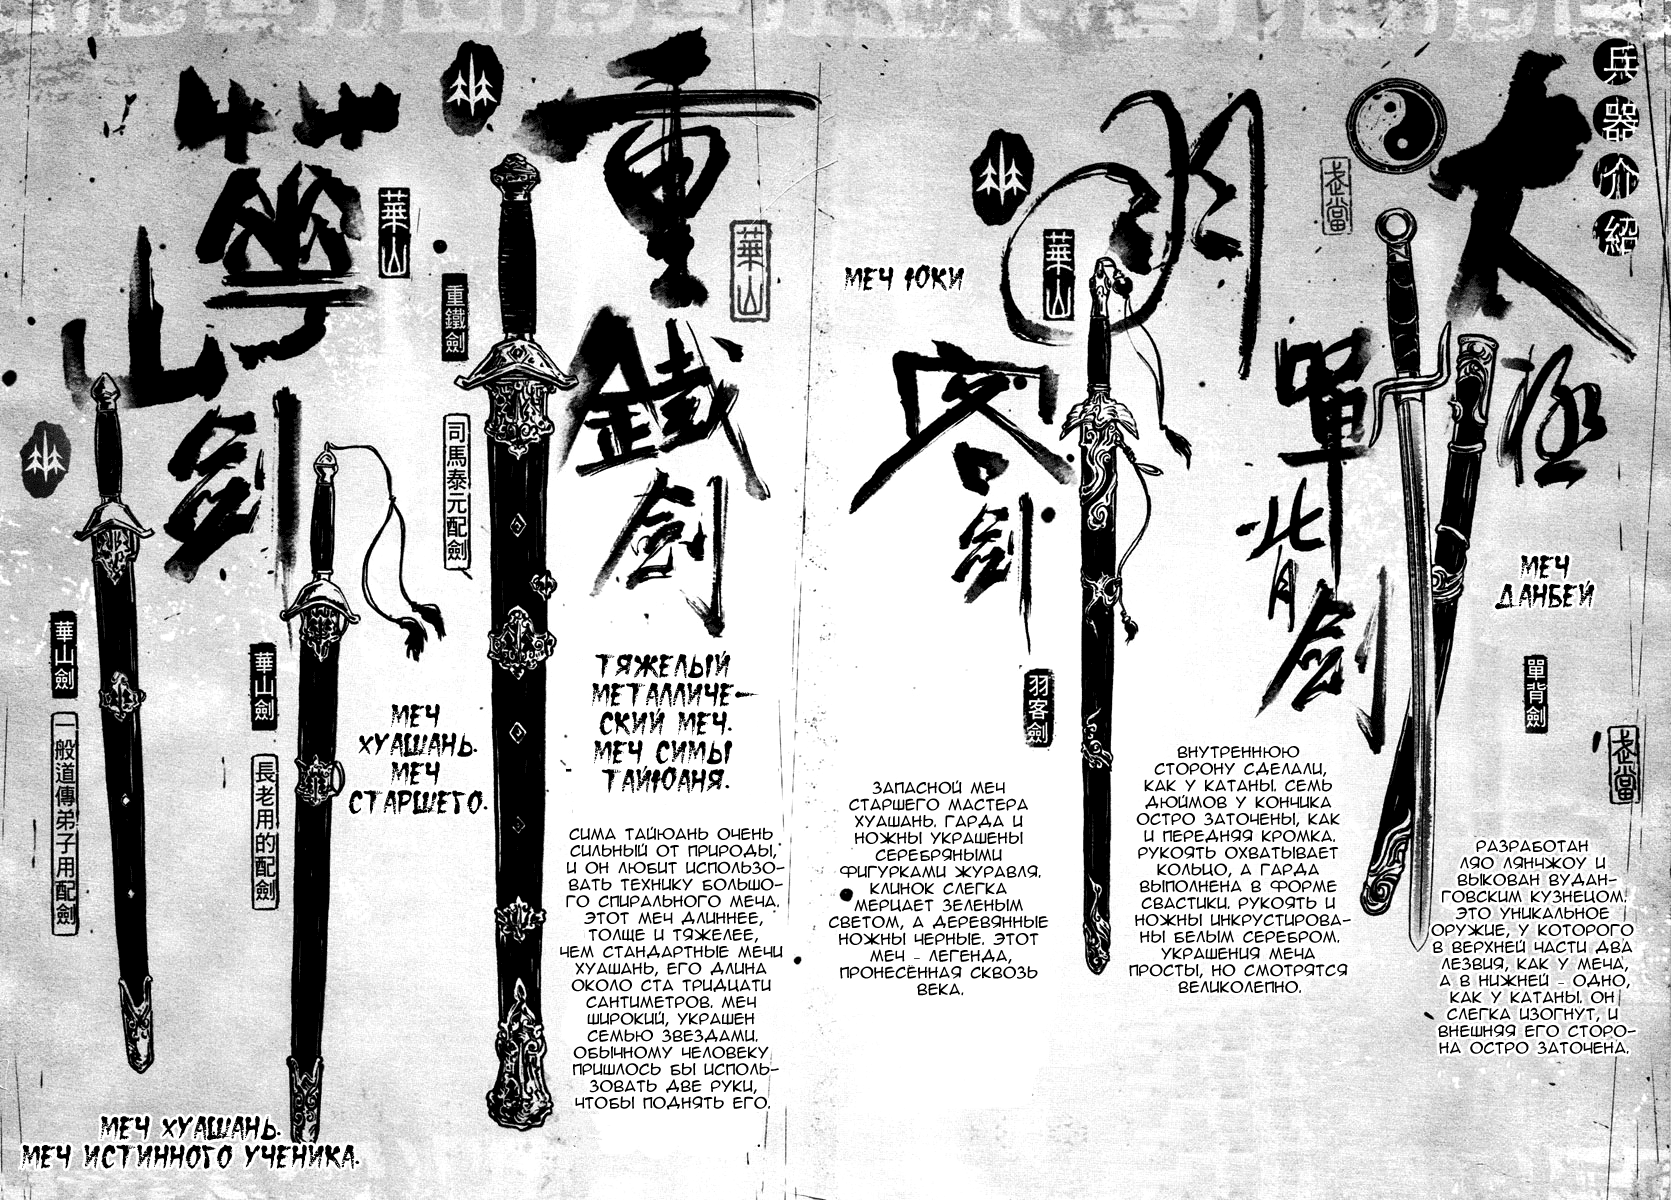 兵器介紹
太極
單背劍
武當
明
客劍
華山
重鐵劍
華山
華山劍
華山
重鐵劍
司馬泰元配劍
羽客劍
單背劍
武當
華山劍
一般道傳弟子用配劍
華山劍
長老用的配劍
МЕЧ
ДАНБЕЙ
РАЗРАБОТАН
ЛЯО ЛЯНЧЖОУ И
ВЫКОВАН ВУДАН-
ГОВСКИМ КУЗНЕЦОМ.
ЭТО УНИКАЛЬНОЕ
ОРУЖИЕ, У КОТОРОГО
В ВЕРХНЕЙ ЧАСТИ ДВА
ЛЕЗВИЯ, КАК У МЕЧА,
А В НИЖНЕЙ - ОДНО,
КАК У КАТАНЫ. ОН
СЛЕГКА ИЗОГНУТ, И
ВНЕШНЯЯ ЕГО СТОРО-
НА ОСТРО ЗАТОЧЕНА.
ВНУТРЕННЮЮ
СТОРОНУ СДЕЛАЛИ,
КАК У КАТАНЫ. СЕМЬ
ДЮЙМОВ У КОНЧИКА
ОСТРО ЗАТОЧЕНЫ, КАК
И ПЕРЕДНЯЯ КРОМКА.
РУКОЯТЬ ОХВАТЫВАЕТ
КОЛЬЦО, А ГАРДА
ВЫПОЛНЕНА В ФОРМЕ
СВАСТИКИ. РУКОЯТЬ И
НОЖНЫ ИНКРУСТИРОВА-
НЫ БЕЛЫМ СЕРЕБРОМ.
УКРАШЕНИЯ МЕЧА
ПРОСТЫ, НО СМОТРЯТСЯ
ВЕЛИКОЛЕПНО.
МЕЧ ЮКИ
ЗАПАСНОЙ МЕЧ
СТАРШЕГО МАСТЕРА
ХУАШАНЬ. ГАРДА И
НОЖНЫ УКРАШЕНЫ
СЕРЕБРЯНЫМИ
ФИГУРКАМИ ЖУРАВЛЯ.
КЛИНОК СЛЕГКА
МЕРЦАЕТ ЗЕЛЕНЫМ
СВЕТОМ, А ДЕРЕВЯННЫЕ
НОЖНЫ ЧЕРНЫЕ. ЭТОТ
МЕЧ - ЛЕГЕНДА,
ПРОНЕСЁННАЯ СКВОЗЬ
ВЕКА.
ТЯЖЕЛЫЙ
МЕТАЛЛИЧЕ-
СКИЙ МЕЧ.
МЕЧ СИМЫ
ТАЙЮАНЯ.
СИМА ТАЙЮАНЬ ОЧЕНЬ
СИЛЬНЫЙ ОТ ПРИРОДЫ,
И ОН ЛЮБИТ ИСПОЛЬЗО-
ВАТЬ ТЕХНИКУ БОЛЬШО-
ГО СПИРАЛЬНОГО МЕЧА.
ЭТОТ МЕЧ ДЛИННЕЕ,
ТОЛЩЕ И ТЯЖЕЛЕЕ,
ЧЕМ СТАНДАРТНЫЕ МЕЧИ
ХУАШАНЬ, ЕГО ДЛИНА
ОКОЛО СТА ТРИДЦАТИ
САНТИМЕТРОВ. МЕЧ
ШИРОКИЙ, УКРАШЕН
СЕМЬЮ ЗВЕЗДАМИ.
ОБЫЧНОМУ ЧЕЛОВЕКУ
ПРИШЛОСЬ БЫ ИСПОЛЬ-
ЗОВАТЬ ДВЕ РУКИ,
ЧТОБЫ ПОДНЯТЬ ЕГО.
МЕЧ
ХУАШАНЬ.
МЕЧ
СТАРШЕГО.
МЕЧ ХУАШАНЬ.
МЕЧ ИСТИННОГО УЧЕНИКА.